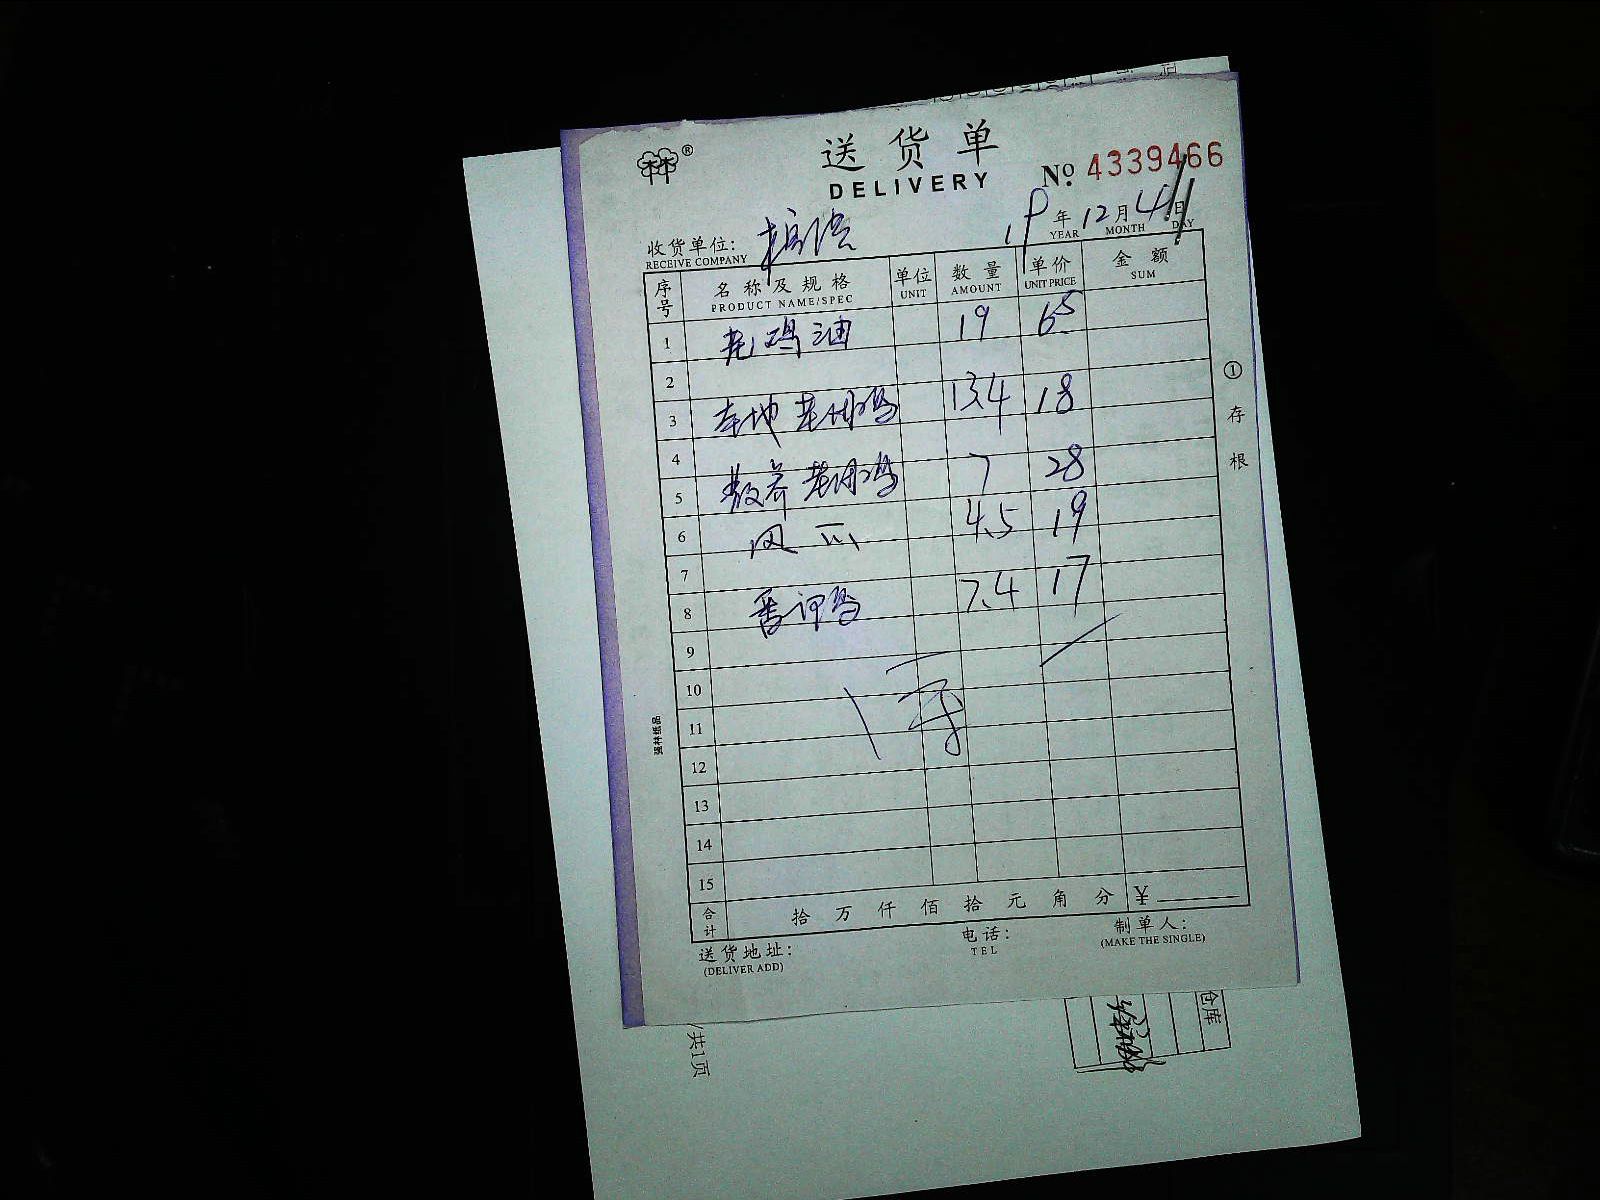 ®
送货单
DELIVERY
No. 4339466
收货单位:
RECEIVE COMPANY
19 年 12 月 4 日
YEAR MONTH DAY
序号 名称及规格 单位 数量 单价 金额
PRODUCT NAME/SPEC UNIT AMOUNT UNIT PRICE SUM
1 老鸡油 19 6.5
2
3 本地老母鸡 13.4 18
4
5 散养老母鸡 7 28
6 风爪 4.5 19
7
8 7.4 17
9
10
11
12
13
14
15
合计 拾 万 仟 佰 拾 元 角 分 ¥
送货地址:
(DELIVER ADD)
电话:
TEL
制单人:
(MAKE THE SINGLE)
①存根
强林纸品
仓库
/共1页